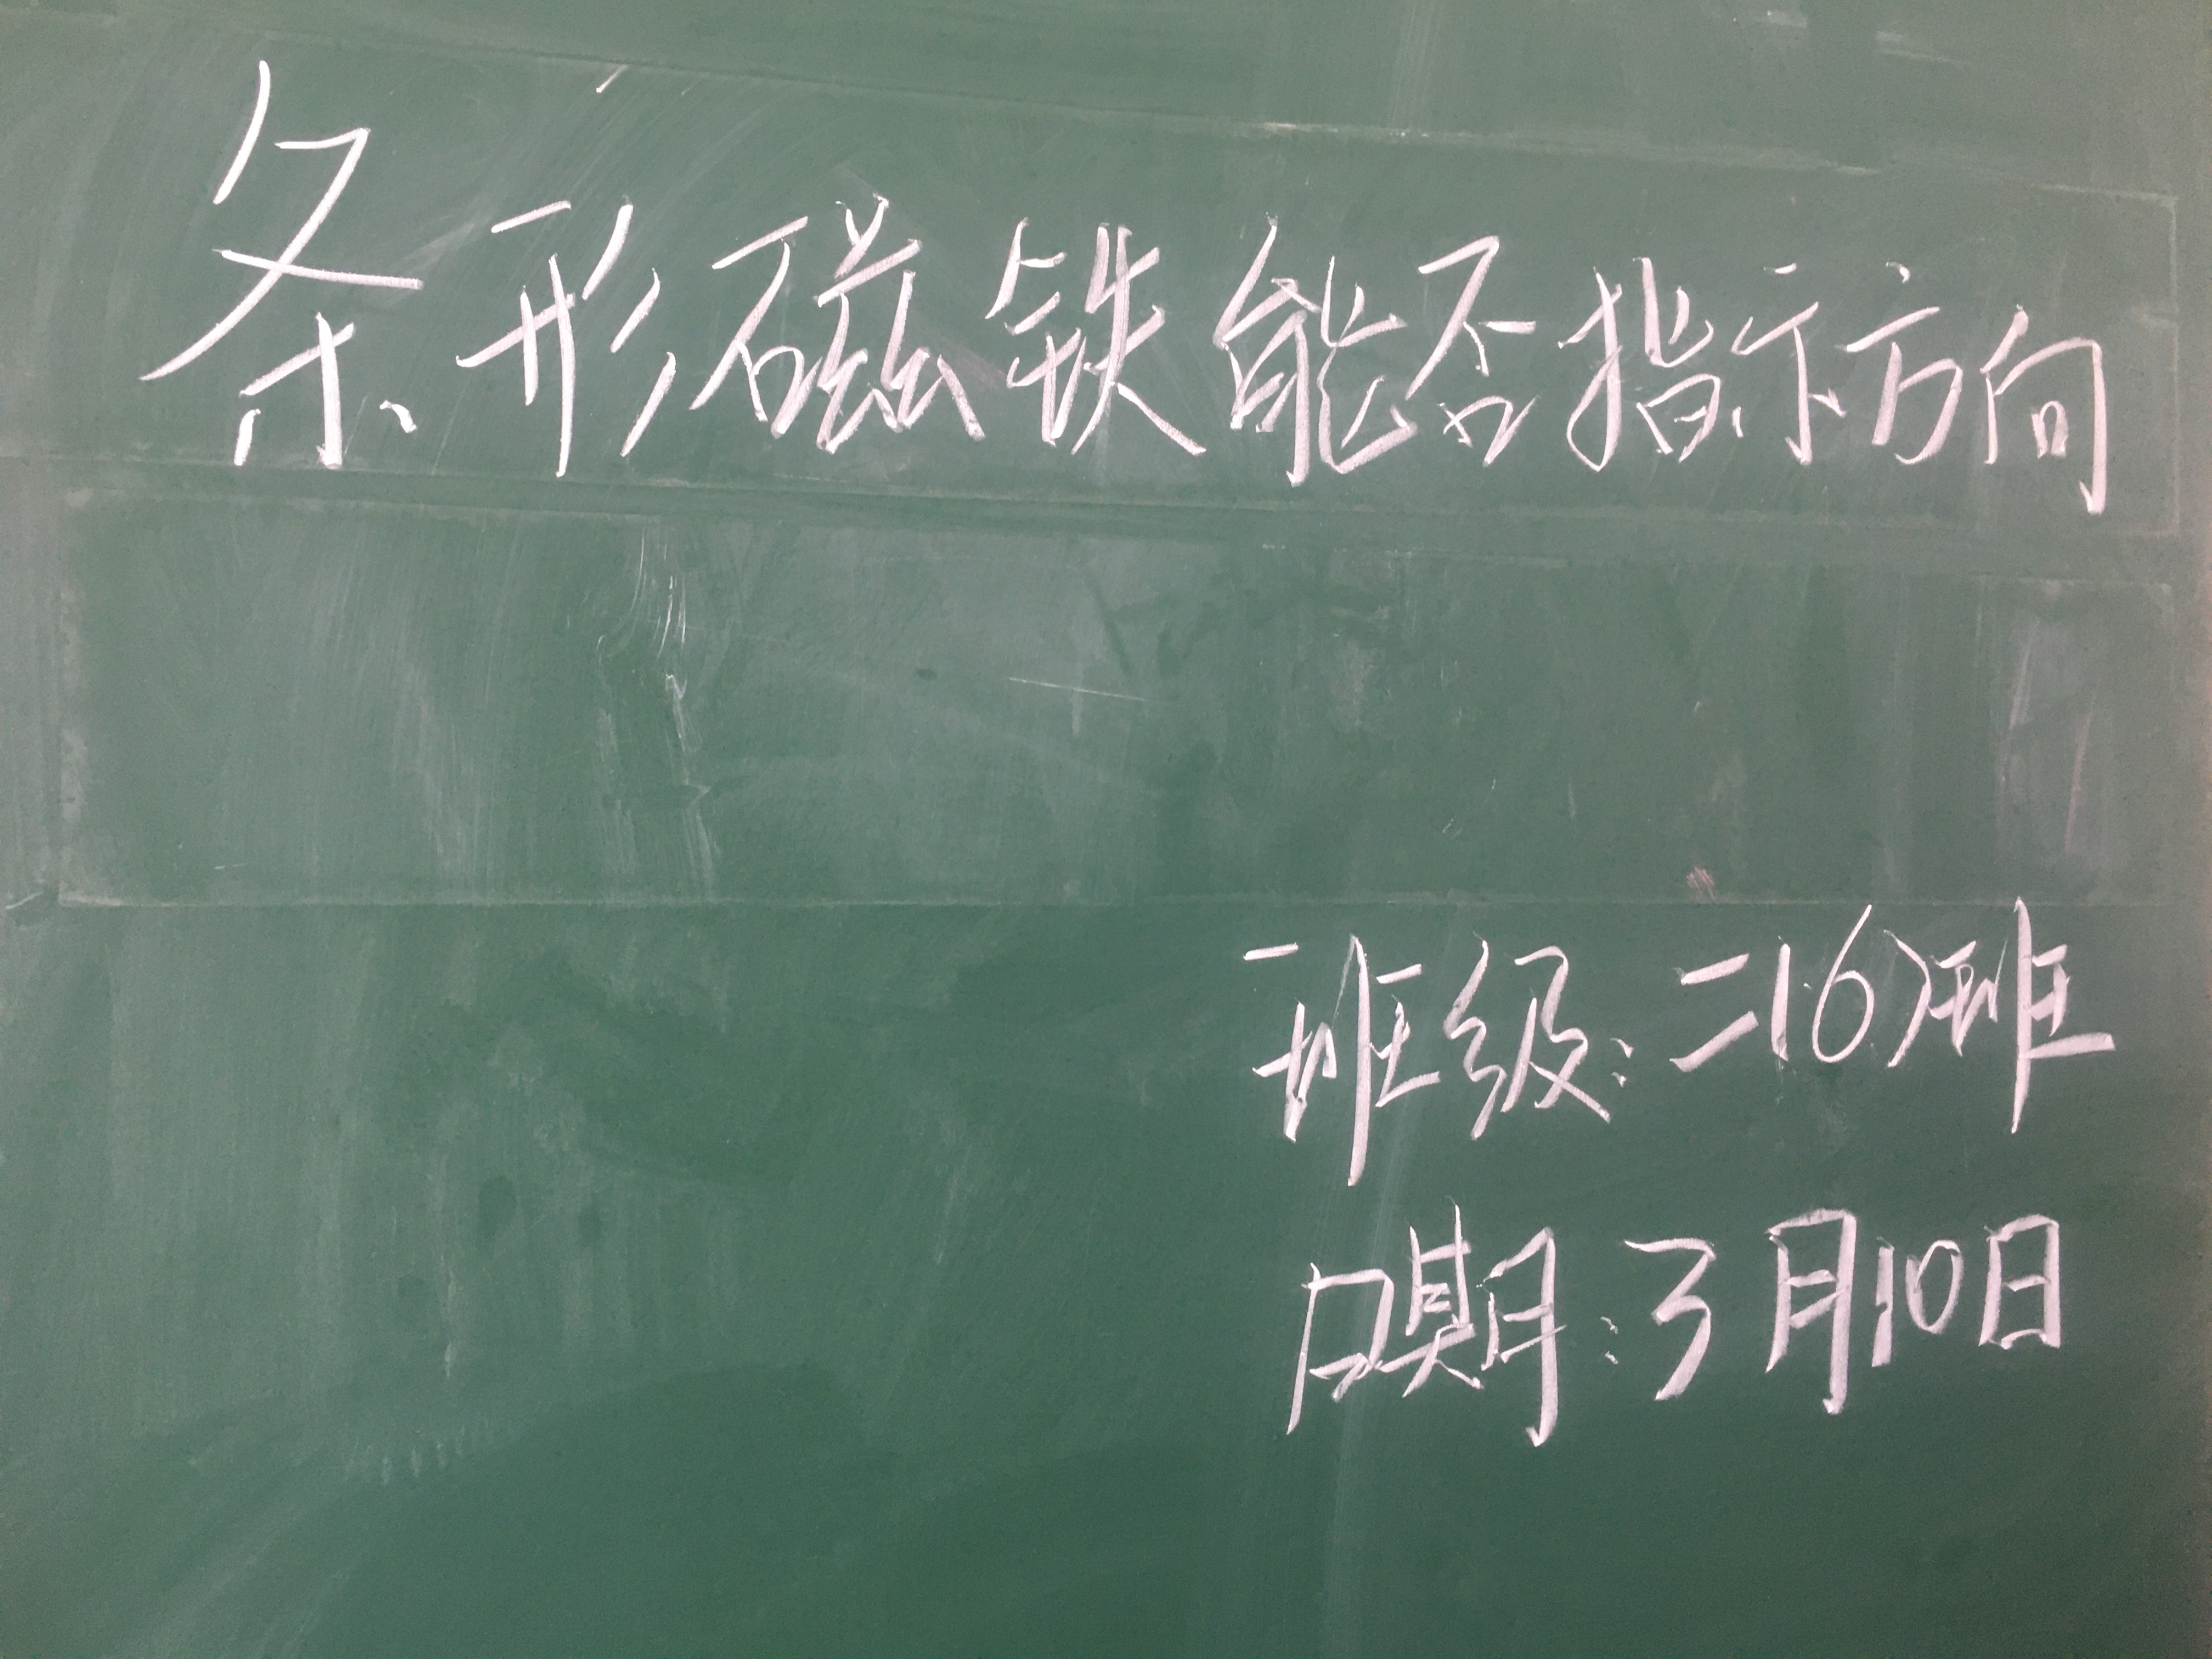 条形磁铁能否指示方向
班级:二(6)班
日期:3月10日